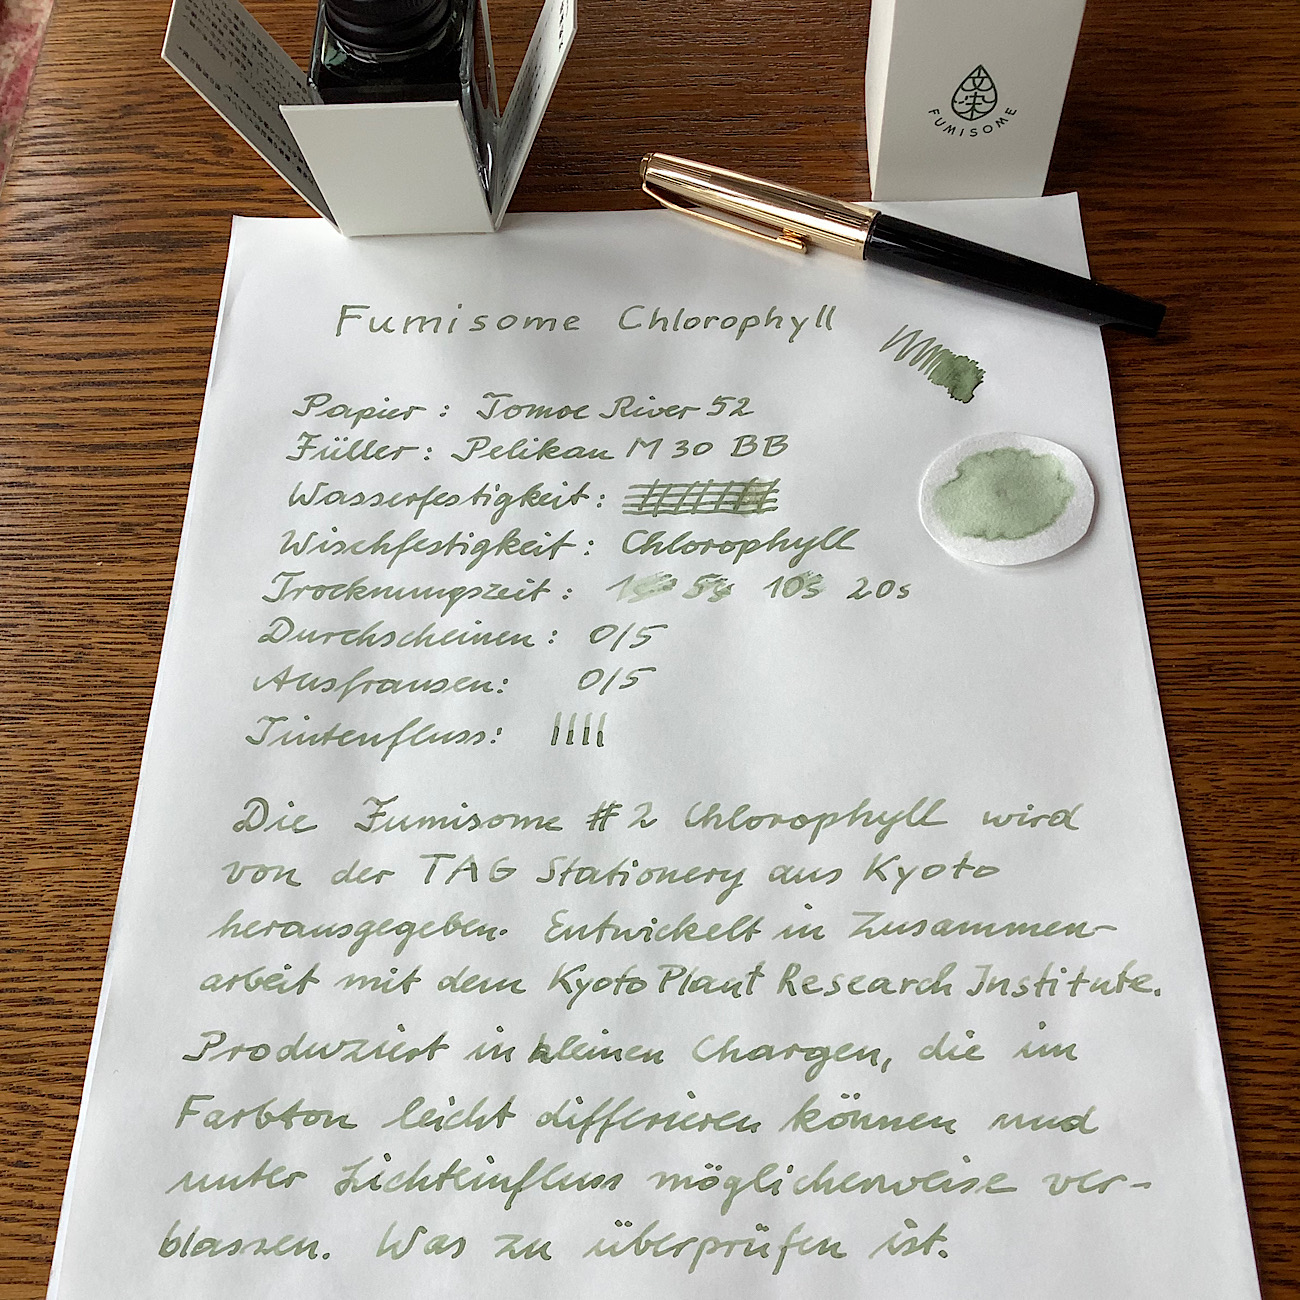 文染
FUMISOME
Fumisome Chlorophyll
Papier: Tomoe River 52
Füller: Pelikan M 30 BB
Wasserfestigkeit:
Wischfestigkeit: Chlorophyll
Trocknungszeit: 1s 5s 10s 20s
Durchscheinen: 0/5
Ausfransen: 0/5
Tintenfluss:
Die Fumisome #2 Chlorophyll wird
von der TAG Stationery aus Kyoto
herausgegeben. Entwickelt in Zusammen-
arbeit mit dem Kyoto Plant Research Institute.
Produziert in kleinen Chargen, die im
Farbton leicht differieren können und
unter Lichteinfluss möglicherweise ver-
blassen. Was zu überprüfen ist.